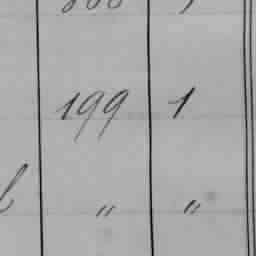 199 1
" "